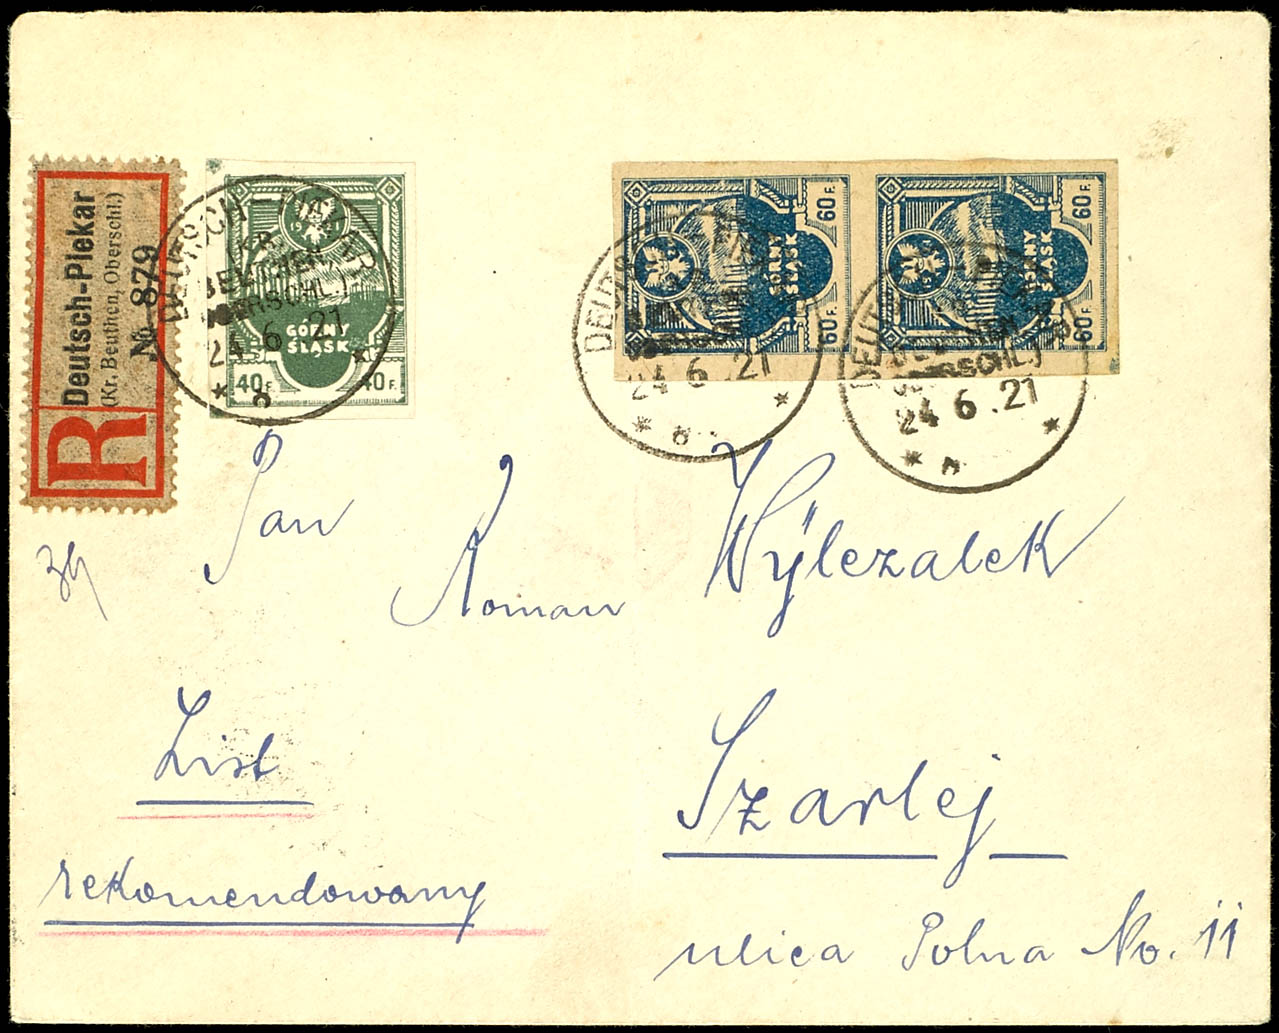 R
Deutsch-Piekar
(Kr. Beuthen, Oberschl.)
№ 879
GÓRNY
ŚLĄSK
40 F. 40 F.
DEUTSCH-PIEKAR
KR.
BEUTHEN
(OBERSCHL.)
24.6.21
* a *
GÓRNY
ŚLĄSK
60 F. 60 F.
24 6.21
* a *
GÓRNY
ŚLĄSK
60 F. 60 F.
BEUTHEN
OBERSCHL.)
24 6.21
*
Pan
Roman Wÿlczalek
34
List
rekomendowany
Szarlej
ulica Polna No. 11